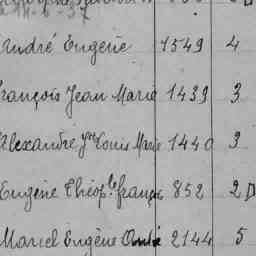 André Eugène 1549 4
François Jean Marie 1439 3
Alexandre Louis Marie 1440 3
Eugène Théophile François 852 2
Marcel Eugène 2144 5